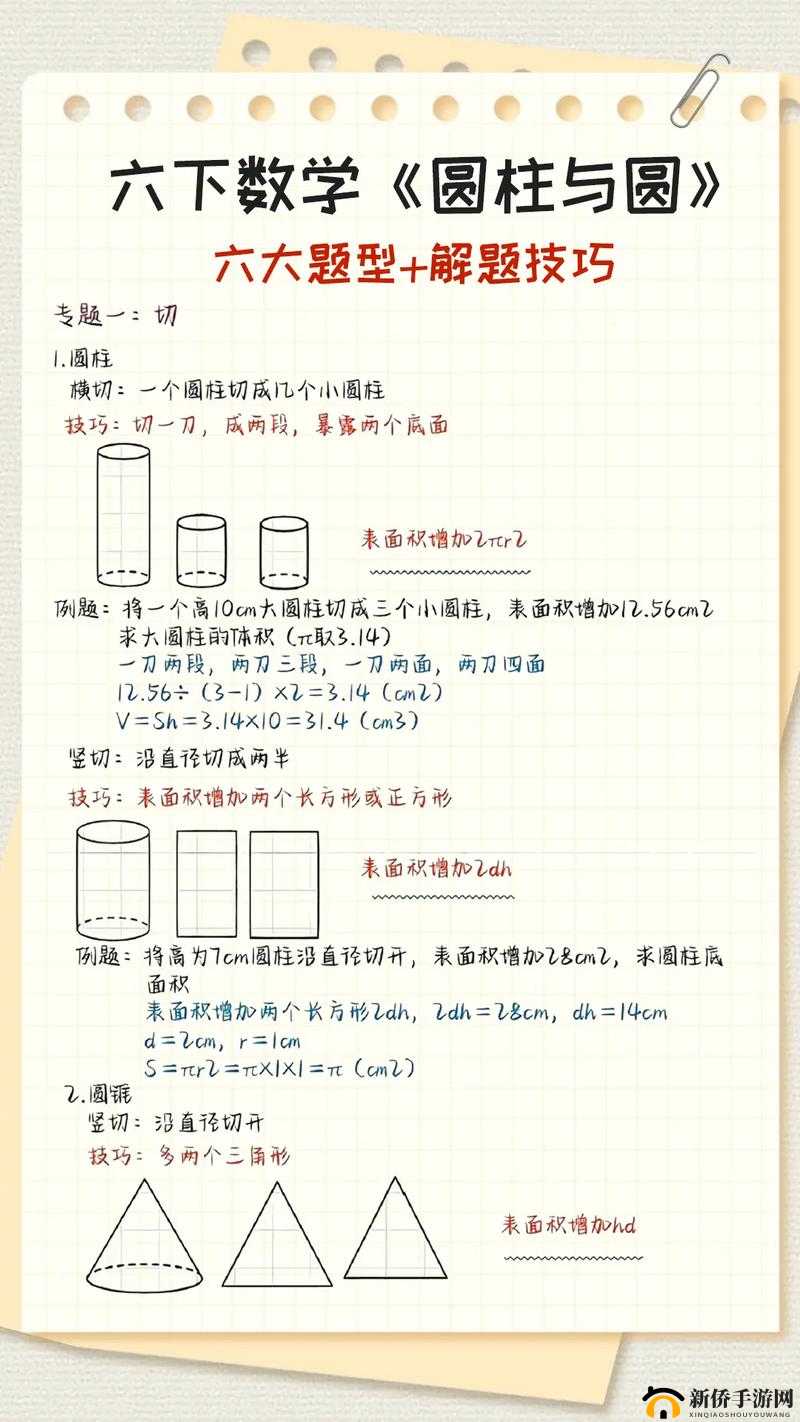 六下数学《圆柱与圆》
六大题型+解题技巧
专题一：切
1.圆柱
横切：一个圆柱切成几个小圆柱
技巧：切一刀，成两段，暴露两个底面
表面积增加2πr2
例题：将一个高10cm大圆柱切成三个小圆柱，表面积增加12.56cm2
求大圆柱的体积（π取3.14）
一刀两段，两刀三段，一刀两面，两刀四面
12.56÷（3-1）×2=3.14（cm2）
V=Sh=3.14×10=31.4（cm3）
竖切：沿直径切成两半
技巧：表面积增加两个长方形或正方形
表面积增加2dh
例题：将高为7cm圆柱沿直径切开，表面积增加28cm2，求圆柱底
面积
表面积增加两个长方形2dh，2dh=28cm，dh=14cm
d=2cm，r=1cm
S=πr2=π×1×1=π（cm2）
2.圆锥
竖切：沿直径切开
技巧：多两个三角形
表面积增加hd
新侨手游网
XINQIAOSHOUYOUWANG